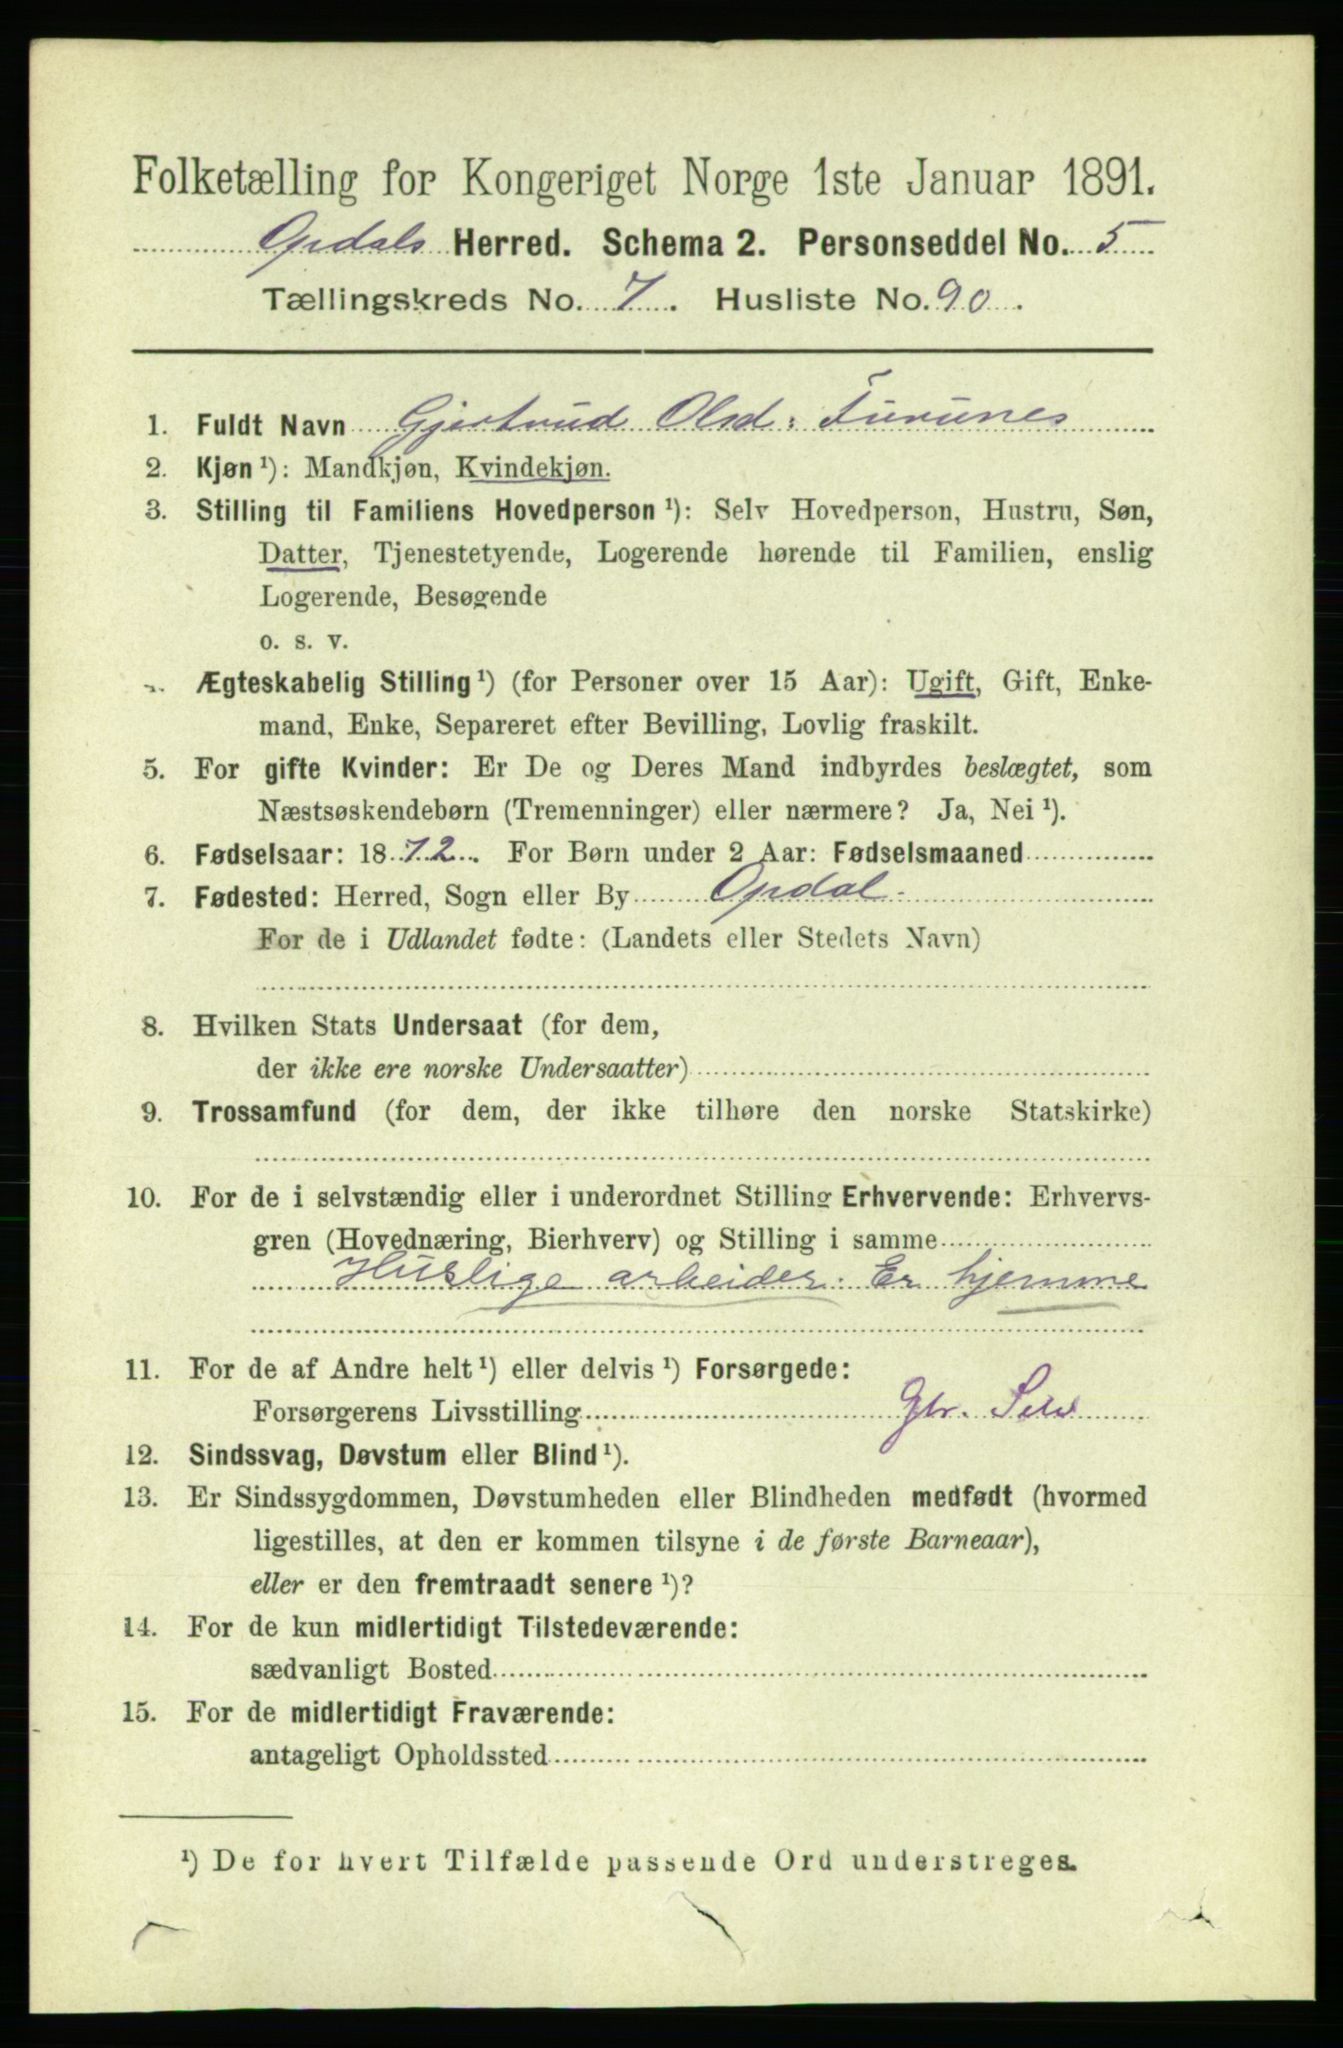 Folketælling for Kongeriget Norge 1ste Januar 1891.
Opdals Herred. Schema 2. Personseddel No. 5
Tællingskreds No. 7. Husliste No. 90.
1. Fuldt Navn Gjertrud Olsd: Furunes
2. Kjøn ¹): Mandkjøn, Kvindekjøn.
3. Stilling til Familiens Hovedperson ¹): Selv Hovedperson, Hustru, Søn,
Datter, Tjenestetyende, Logerende hørende til Familien, enslig
Logerende, Besøgende
o. s. v.
Ægteskabelig Stilling ¹) (for Personer over 15 Aar): Ugift, Gift, Enke-
mand, Enke, Separeret efter Bevilling, Lovlig fraskilt.
5. For gifte Kvinder: Er De og Deres Mand indbyrdes beslægtet, som
Næstsøskendebørn (Tremenninger) eller nærmere? Ja, Nei ¹).
6. Fødselsaar: 1872. For Børn under 2 Aar: Fødselsmaaned
7. Fødested: Herred, Sogn eller By Opdal.
For de i Udlandet fødte: (Landets eller Stedets Navn)
8. Hvilken Stats Undersaat (for dem,
der ikke ere norske Undersaatter)
9. Trossamfund (for dem, der ikke tilhøre den norske Statskirke)
10. For de i selvstændig eller i underordnet Stilling Erhvervende: Erhvervs-
gren (Hovednæring, Bierhverv) og Stilling i samme
Huslige arbeider. Er hjemme
11. For de af Andre helt ¹) eller delvis ¹) Forsørgede:
Forsørgerens Livsstilling Gbr. Selv
12. Sindssvag, Døvstum eller Blind ¹).
13. Er Sindssygdommen, Døvstumheden eller Blindheden medfødt (hvormed
ligestilles, at den er kommen tilsyne i de første Barneaar),
eller er den fremtraadt senere ¹)?
14. For de kun midlertidigt Tilstedeværende:
sædvanligt Bosted
15. For de midlertidigt Fraværende:
antageligt Opholdssted
¹) De for hvert Tilfælde passende Ord understreges.